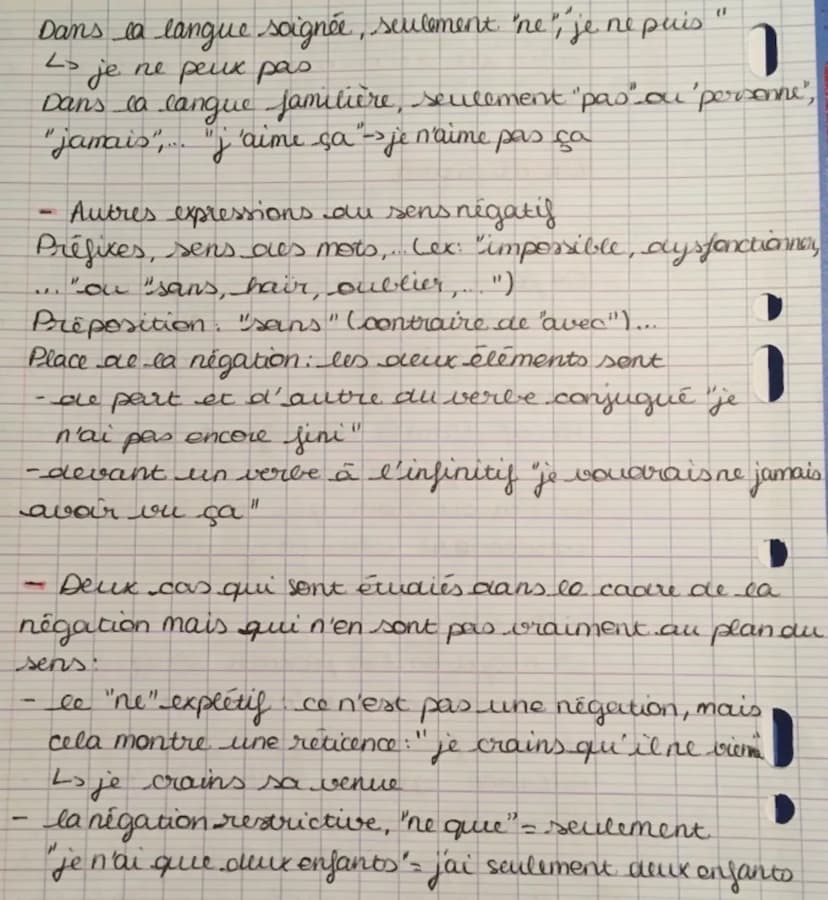 Dans la langue soignée, seulement "ne", "je ne puis"
↳ je ne peux pas
Dans la langue familière, seulement "pas" ou "personne",
"jamais",... "j'aime ça" → je n'aime pas ça
- Autres expressions du sens négatif
Préfixes, sens des mots,... (ex: "impossible, dysfonctionner,
..." ou "sans, haïr, oublier,...")
Préposition: "sans" (contraire de "avec")...
Place de la négation: les deux éléments sont
- de part et d'autre du verbe conjugué "je
n'ai pas encore fini"
- devant un verbe à l'infinitif "je voudrais ne jamais
avoir vu ça"
- Deux cas qui sont étudiés dans le cadre de la
négation mais qui n'en sont pas vraiment au plan du
sens:
- le "ne" explétif: ce n'est pas une négation, mais
cela montre une réticence: "je crains qu'il ne vienne
↳ je crains sa venue
- la négation restrictive, "ne que" = seulement
"je n'ai que deux enfants" = j'ai seulement deux enfants